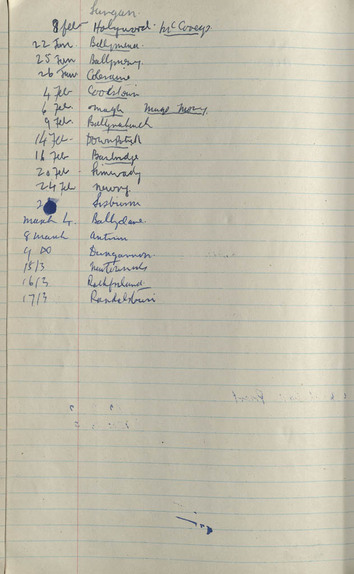 Dungan
8 feb Holywood. McConeys
22 Jan Ballymena.
25 Jan Ballymoney.
26 Jan Coleraine
4 Feb Cookstown
6 Feb omagh Newry
9 Feb. Ballynahinch
14 Feb Downpatrick
16 Feb Banbridge
20 Feb Limavady
24 Feb Newry
2 Lisburn
march 4. Ballyclare
8 march Antrim
9 Do Dungannon.
15/3 Newtownards
16/3 Rathfriland
17/3 Randalstown